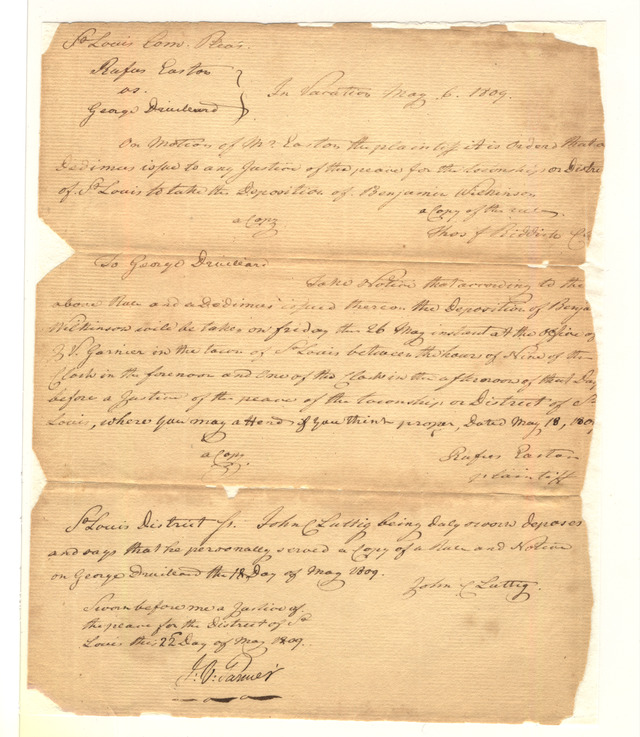 St Louis Com. Pleas.
Rufus Easton
vs.
George Druilleard
In Vacation May 6. 1809.
On Motion of Mr Easton the plaintiff it is Ordered that a
Dedimus issue to any Justice of the peace for the township or Distre
of St Louis to take the Deposition of Benjamin Wilkinson
a Copy
a Copy of the rule
Thos F Riddick
To George Druilleard
Take Notice that according to the
above Rule and a Dedimus issued thereon the Deposition of Benja
Wilkinson will be taken on friday the 26 May instant at the Office of
J. V. Garnier in the town of St Louis between the hour of Nine of the
Clock in the forenoon and One of the Clock in the afternoon of that Day
before a Justice of the peace of the township or District of St
Louis, where you may attend if you think proper, Dated May 18, 180
a Copy
Rufus Easton
plaintiff
St Louis District Ss. John C Luttig being duly sworn deposes
and says that he personally served a Copy of a Rule and Notice
on George Druilleard the 18 Day of May 1809.
John C Luttig.
Sworn before me a Justice of
the peace for the District of St
Louis this 22d Day of May 1809.
J. V. Garnier